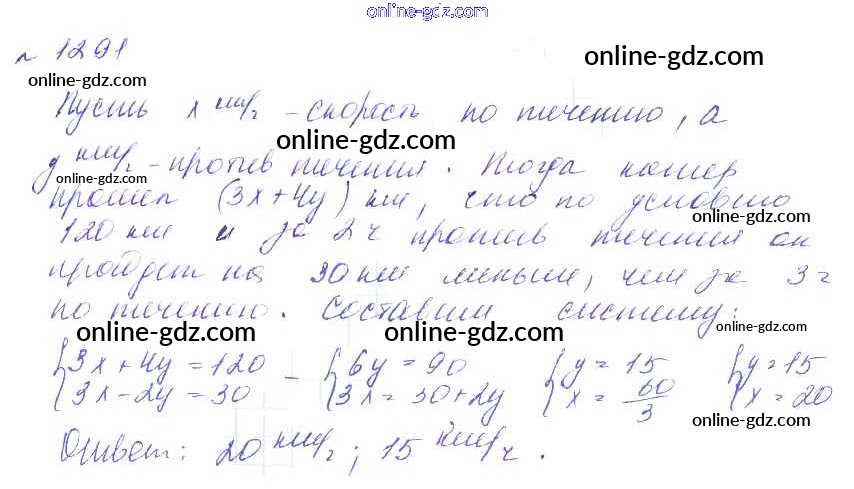 online-gdz.com
№ 1291
online-gdz.com
online-gdz.com
Пусть x км/ч - скорость по течению, а
online-gdz.com
y км/ч - против течения. Тогда катер
online-gdz.com
прошел (3x+4y) км, что по условию
online-gdz.com
120 км и за 2ч против течения он
пройдет на 30 км меньше, чем за 3ч
по течению. Составим систему:
online-gdz.com
online-gdz.com
online-gdz.com
{3x+4y=120 - {6y=90 {y=15 {y=15
{3x-2y=30 {3x=30+2y {x=60/3 {x=20
online-gdz.com
Ответ: 20 км/ч; 15 км/ч.
online-gdz.com